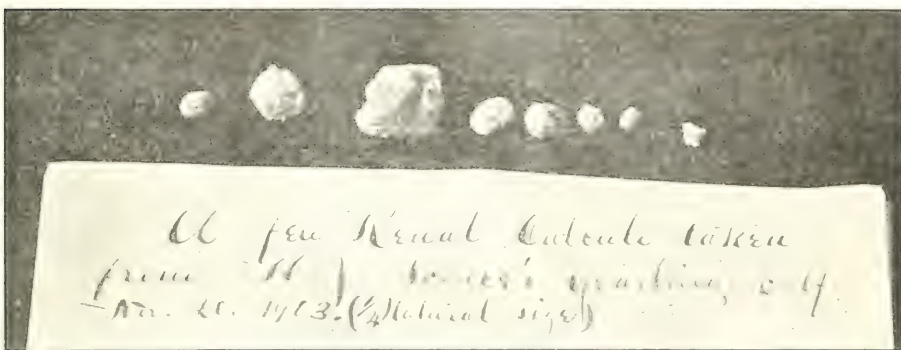 A few Renal Calculi taken
from yearling calf
1913. (¼ Natural size)